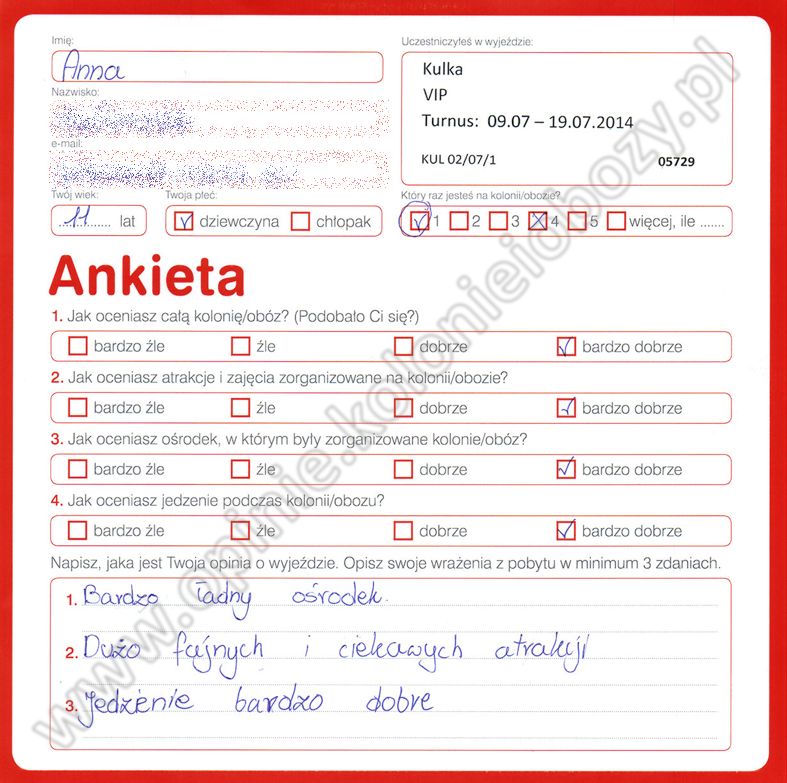 Imię:
Uczestniczyłeś w wyjeździe:
Anna
Kulka
VIP
Turnus: 09.07 – 19.07.2014
KUL 02/07/1 05729
Nazwisko:
e-mail:
Twój wiek: Twoja płeć: Który raz jesteś na kolonii/obozie?
11 lat dziewczyna chłopak 1 2 3 4 5 więcej, ile .......
Ankieta
1. Jak oceniasz całą kolonię/obóz? (Podobało Ci się?)
bardzo źle źle dobrze bardzo dobrze
2. Jak oceniasz atrakcje i zajęcia zorganizowane na kolonii/obozie?
bardzo źle źle dobrze bardzo dobrze
3. Jak oceniasz ośrodek, w którym były zorganizowane kolonie/obóz?
bardzo źle źle dobrze bardzo dobrze
4. Jak oceniasz jedzenie podczas kolonii/obozu?
bardzo źle źle dobrze bardzo dobrze
Napisz, jaka jest Twoja opinia o wyjeździe. Opisz swoje wrażenia z pobytu w minimum 3 zdaniach.
1. Bardzo ładny ośrodek.
2. Dużo fajnych i ciekawych atrakcji
3. Jedzenie bardzo dobre
www.opinie.kolonieiobozy.pl